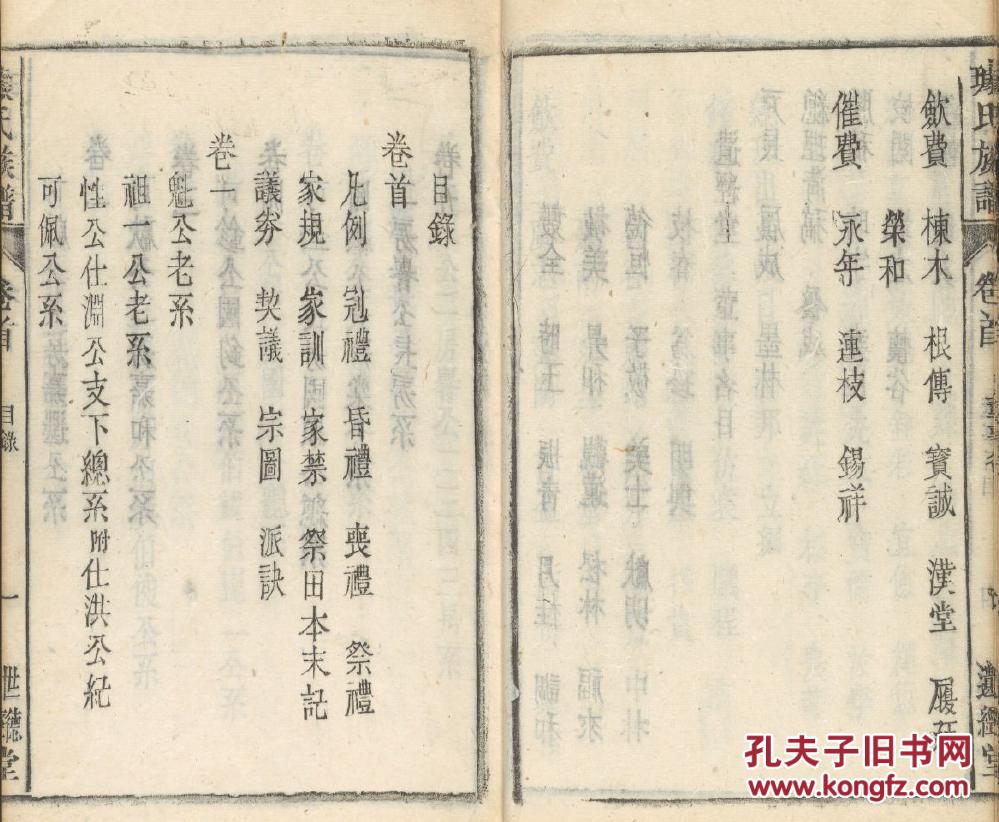 氏族譜 卷首
歛費 棟木 根傳 寳誠 漢堂 履
榮和
催費 永年 連枝 錫祥
目錄
卷首
凡例 冠禮 昏禮 喪禮 祭禮
家規 家訓 家禁 祭田本末記
議劵 契議 宗圖 派訣
卷一
魁公老系
祖一公老系
性公仕淵公支下總系附仕洪公紀
可佩公系
氏族譜 卷首 目錄 一 堂
孔夫子旧书网
www.kongfz.com